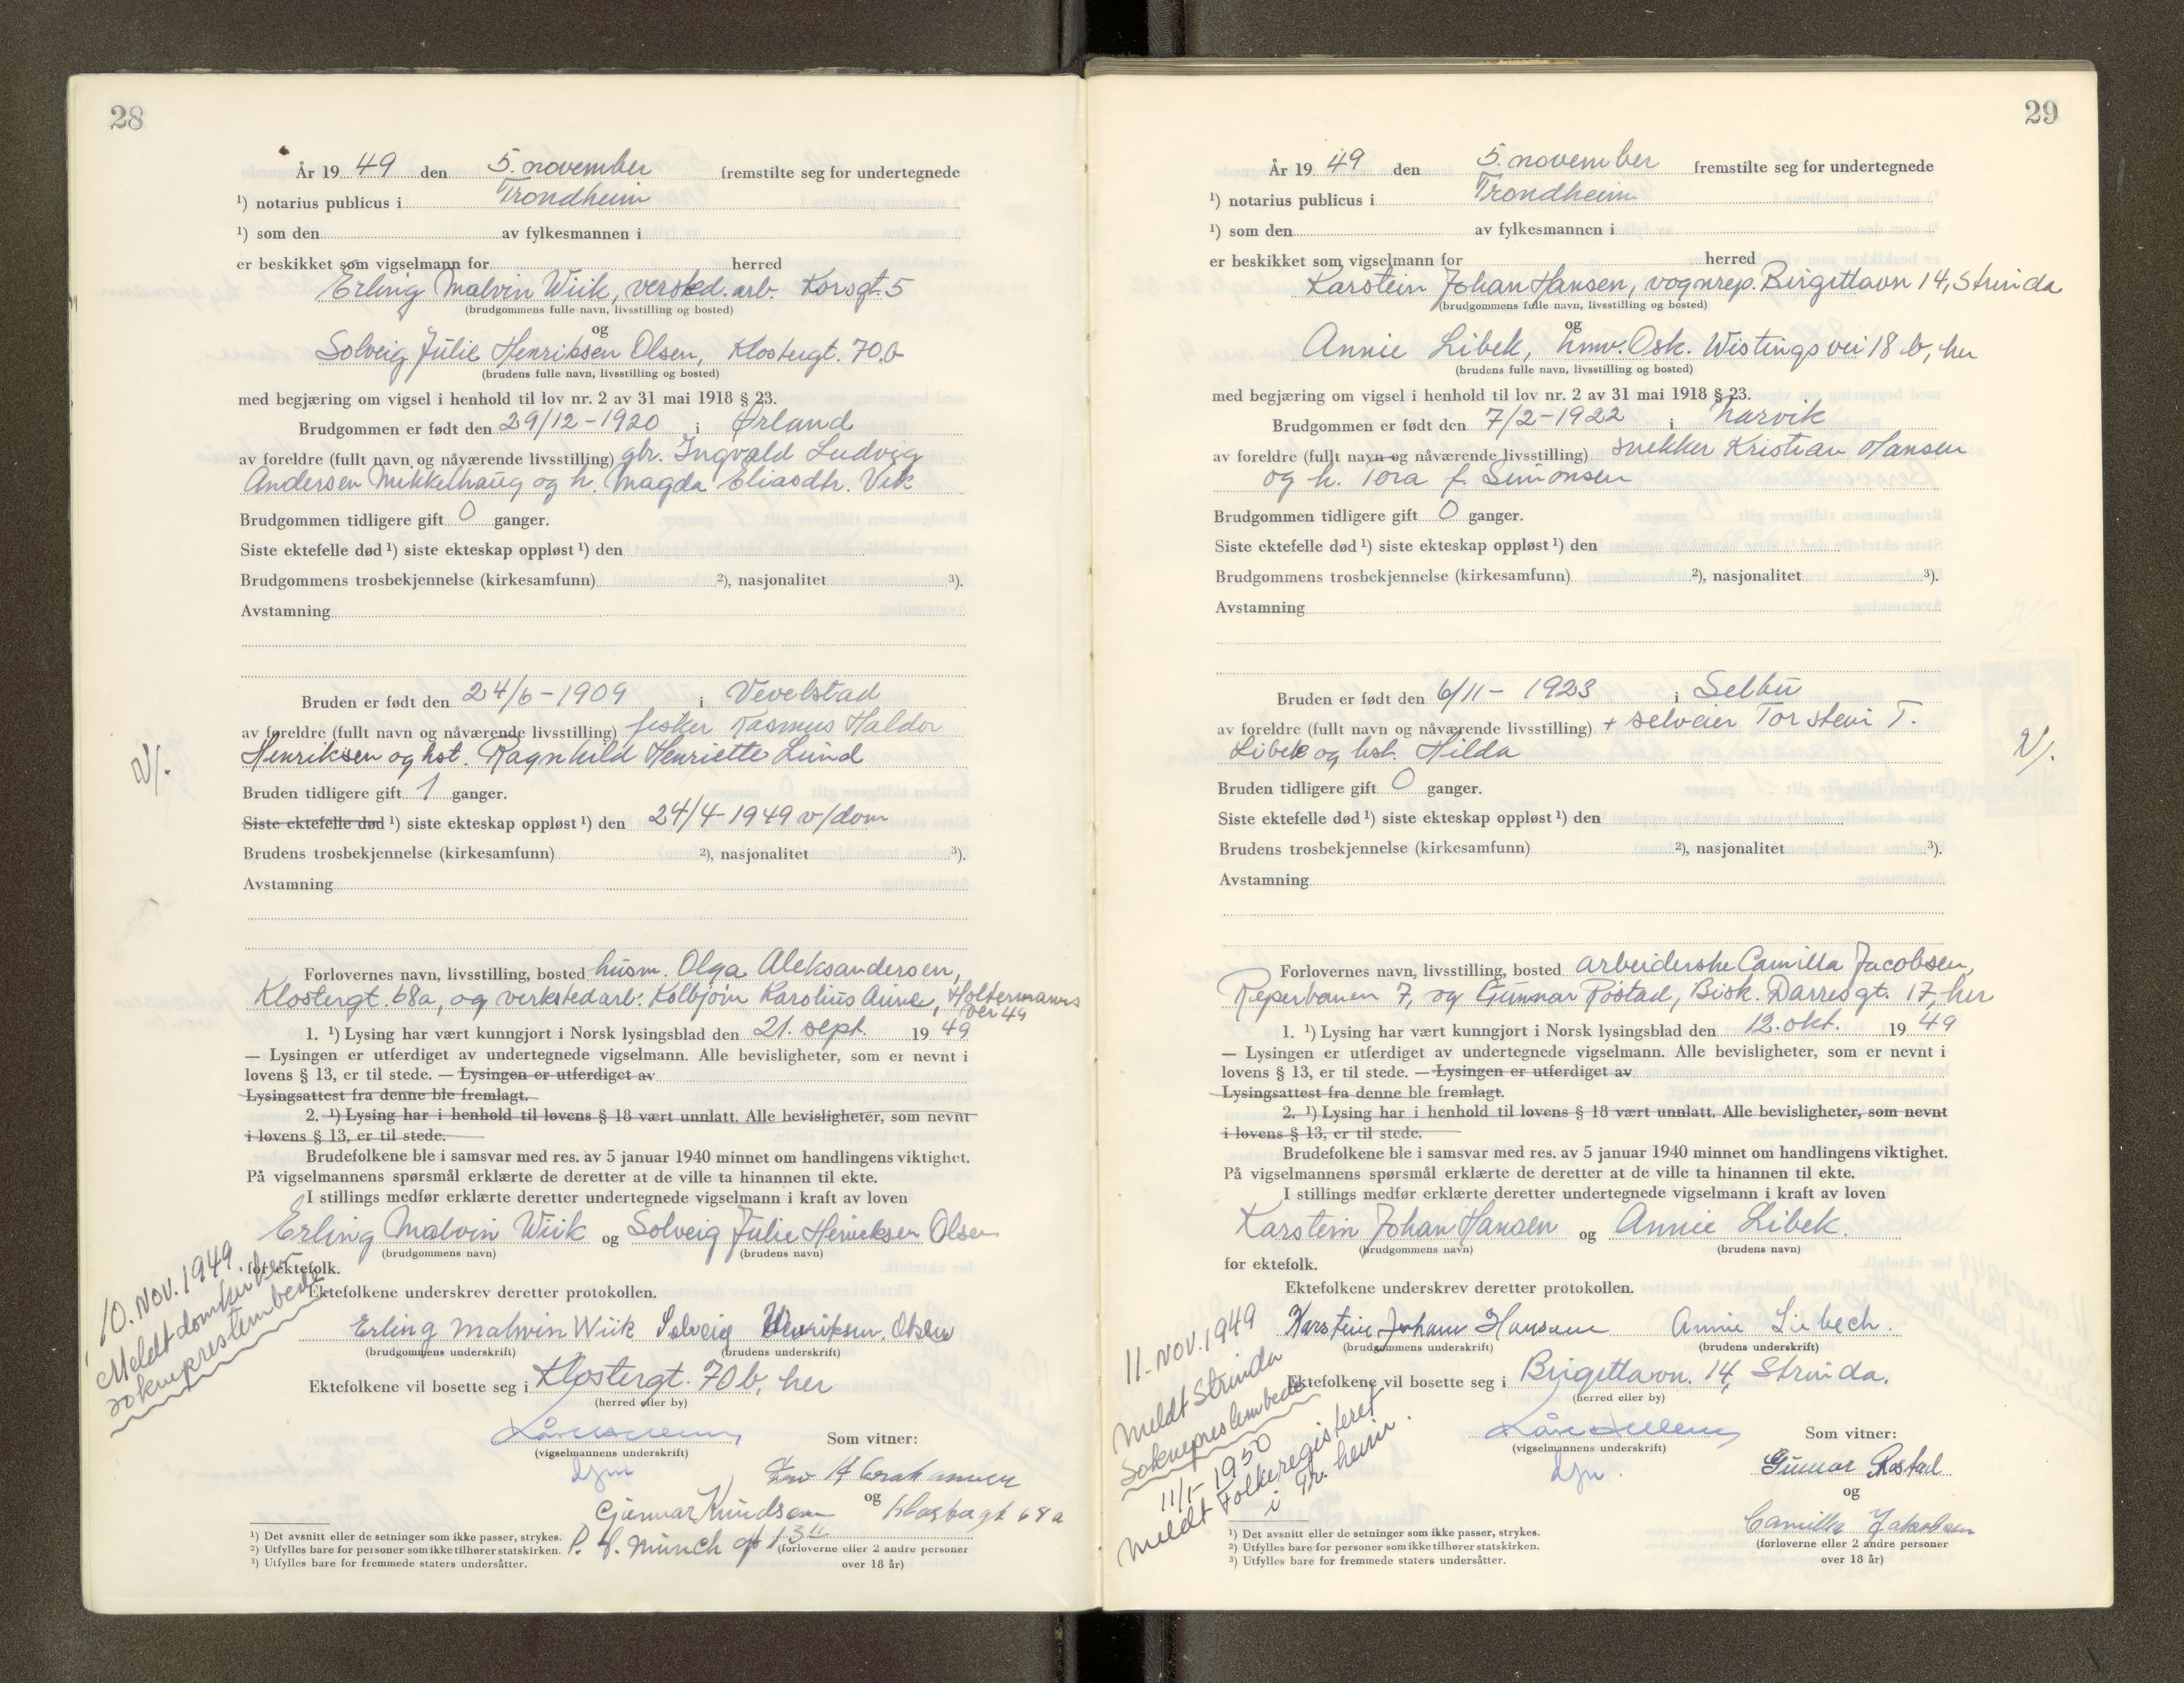 28
År 19 49 den 5. november fremstilte seg for undertegnede
¹) notarius publicus i Trondheim
¹) som den av fylkesmannen i
er beskikket som vigselmann for herred
Erling Malvin Wiik, versted. arb. Korsgt. 5
(brudgommens fulle navn, livsstilling og bosted)
og
Solveig Julie Henriksen Olsen, Klostergt. 70b
(brudens fulle navn, livsstilling og bosted)
med begjæring om vigsel i henhold til lov nr. 2 av 31 mai 1918 § 23.
Brudgommen er født den 29/12-1920 i Ørland
av foreldre (fullt navn og nåværende livsstilling) gbr. Ingvald Ludvig
Andersen Mikkelhaug og h. Magda Eliasdtr. Vik
Brudgommen tidligere gift 0 ganger.
Siste ektefelle død ¹) siste ekteskap oppløst ¹) den
Brudgommens trosbekjennelse (kirkesamfunn) ²), nasjonalitet ³).
Avstamning
Bruden er født den 24/6-1909 i Vevelstad
av foreldre (fullt navn og nåværende livsstilling) fisker Rasmus Haldor
Henriksen og hst. Ragnhild Henriette Lund
Bruden tidligere gift 1 ganger.
Siste ektefelle død ¹) siste ekteskap oppløst ¹) den 24/4-1949 v/dom
Brudens trosbekjennelse (kirkesamfunn) ²), nasjonalitet ³).
Avstamning
Forlovernes navn, livsstilling, bosted husm. Olga Aleksandersen,
Klostergt. 68a, og verkstedarb: Kolbjørn Karolius Aune, Holtermanns
vei 49
1. ¹) Lysing har vært kunngjort i Norsk lysingsblad den 21. sept. 19 49
— Lysingen er utferdiget av undertegnede vigselmann. Alle bevisligheter, som er nevnt i
lovens § 13, er til stede. — Lysingen er utferdiget av
Lysingsattest fra denne ble fremlagt.
2. ¹) Lysing har i henhold til lovens § 18 vært unnlatt. Alle bevisligheter, som nevnt
i lovens § 13, er til stede.
Brudefolkene ble i samsvar med res. av 5 januar 1940 minnet om handlingens viktighet.
På vigselmannens spørsmål erklærte de deretter at de ville ta hinannen til ekte.
I stillings medfør erklærte deretter undertegnede vigselmann i kraft av loven
Erling Malvin Wiik og Solveig Julie Henriksen Olsen
(brudgommens navn) (brudens navn)
for ektefolk.
Ektefolkene underskrev deretter protokollen.
10. NOV. 1949.
Meldt domkirkens
sokneprestembede
Erling Malvin Wiik Solveig Henriksen. Olsen
(brudgommens underskrift) (brudens underskrift)
Ektefolkene vil bosette seg i Klostergt. 70b, her
(herred eller by)
(vigselmannens underskrift)
Som vitner:
og
Gunnar Knudsen Klostergt 68a
P. A. Munch gt 13
¹) Det avsnitt eller de setninger som ikke passer, strykes.
²) Utfylles bare for personer som ikke tilhører statskirken.
³) Utfylles bare for fremmede staters undersåtter.
(forloverne eller 2 andre personer
over 18 år)
29
År 19 49 den 5. november fremstilte seg for undertegnede
¹) notarius publicus i Trondheim
¹) som den av fylkesmannen i
er beskikket som vigselmann for herred
Karstein Johan Hansen, vognrep. Birgittavn 14, Strinda
(brudgommens fulle navn, livsstilling og bosted)
og
Annie Libek, hmv. Osk. Wistings vei 18 b, her
(brudens fulle navn, livsstilling og bosted)
med begjæring om vigsel i henhold til lov nr. 2 av 31 mai 1918 § 23.
Brudgommen er født den 7/2-1922 i Narvik
av foreldre (fullt navn og nåværende livsstilling) snekker Kristian Hansen
og h. Tora f. Simonsen
Brudgommen tidligere gift 0 ganger.
Siste ektefelle død ¹) siste ekteskap oppløst ¹) den
Brudgommens trosbekjennelse (kirkesamfunn) ²), nasjonalitet ³).
Avstamning
Bruden er født den 6/11-1923 i Selbu
av foreldre (fullt navn og nåværende livsstilling) + selveier Torstein T.
Libek og hst. Hilda
Bruden tidligere gift 0 ganger.
Siste ektefelle død ¹) siste ekteskap oppløst ¹) den
Brudens trosbekjennelse (kirkesamfunn) ²), nasjonalitet ³).
Avstamning
Forlovernes navn, livsstilling, bosted arbeiderske Camilla Jacobsen,
Reperbanen 7, og Gunnar Røstad, Bisk. Darresgt. 17, her
1. ¹) Lysing har vært kunngjort i Norsk lysingsblad den 12. okt. 19 49
— Lysingen er utferdiget av undertegnede vigselmann. Alle bevisligheter, som er nevnt i
lovens § 13, er til stede. — Lysingen er utferdiget av
Lysingsattest fra denne ble fremlagt.
2. ¹) Lysing har i henhold til lovens § 18 vært unnlatt. Alle bevisligheter, som nevnt
i lovens § 13, er til stede.
Brudefolkene ble i samsvar med res. av 5 januar 1940 minnet om handlingens viktighet.
På vigselmannens spørsmål erklærte de deretter at de ville ta hinannen til ekte.
I stillings medfør erklærte deretter undertegnede vigselmann i kraft av loven
Karstein Johan Hansen og Annie Libek.
(brudgommens navn) (brudens navn)
for ektefolk.
Ektefolkene underskrev deretter protokollen.
11. NOV. 1949
Meldt Strinda
Sokneprestembede
11/1-1950
Meldt Folkeregisteret
i Tr. heim.
Karstein Johan Hansen Annie Libech.
(brudgommens underskrift) (brudens underskrift)
Ektefolkene vil bosette seg i Birgittavn. 14, Strinda.
(herred eller by)
(vigselmannens underskrift)
Som vitner:
Gunnar Røstad
og
Camilla Jakobsen
(forloverne eller 2 andre personer
over 18 år)
¹) Det avsnitt eller de setninger som ikke passer, strykes.
²) Utfylles bare for personer som ikke tilhører statskirken.
³) Utfylles bare for fremmede staters undersåtter.